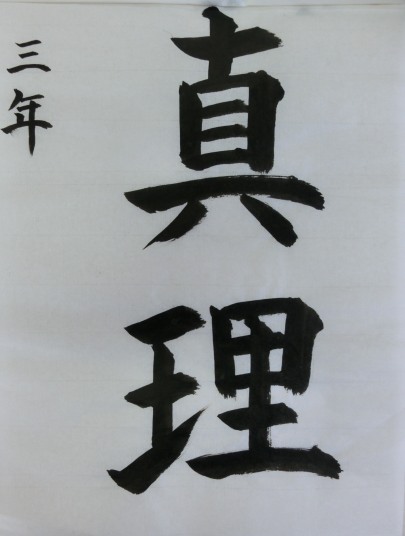 真理
三年